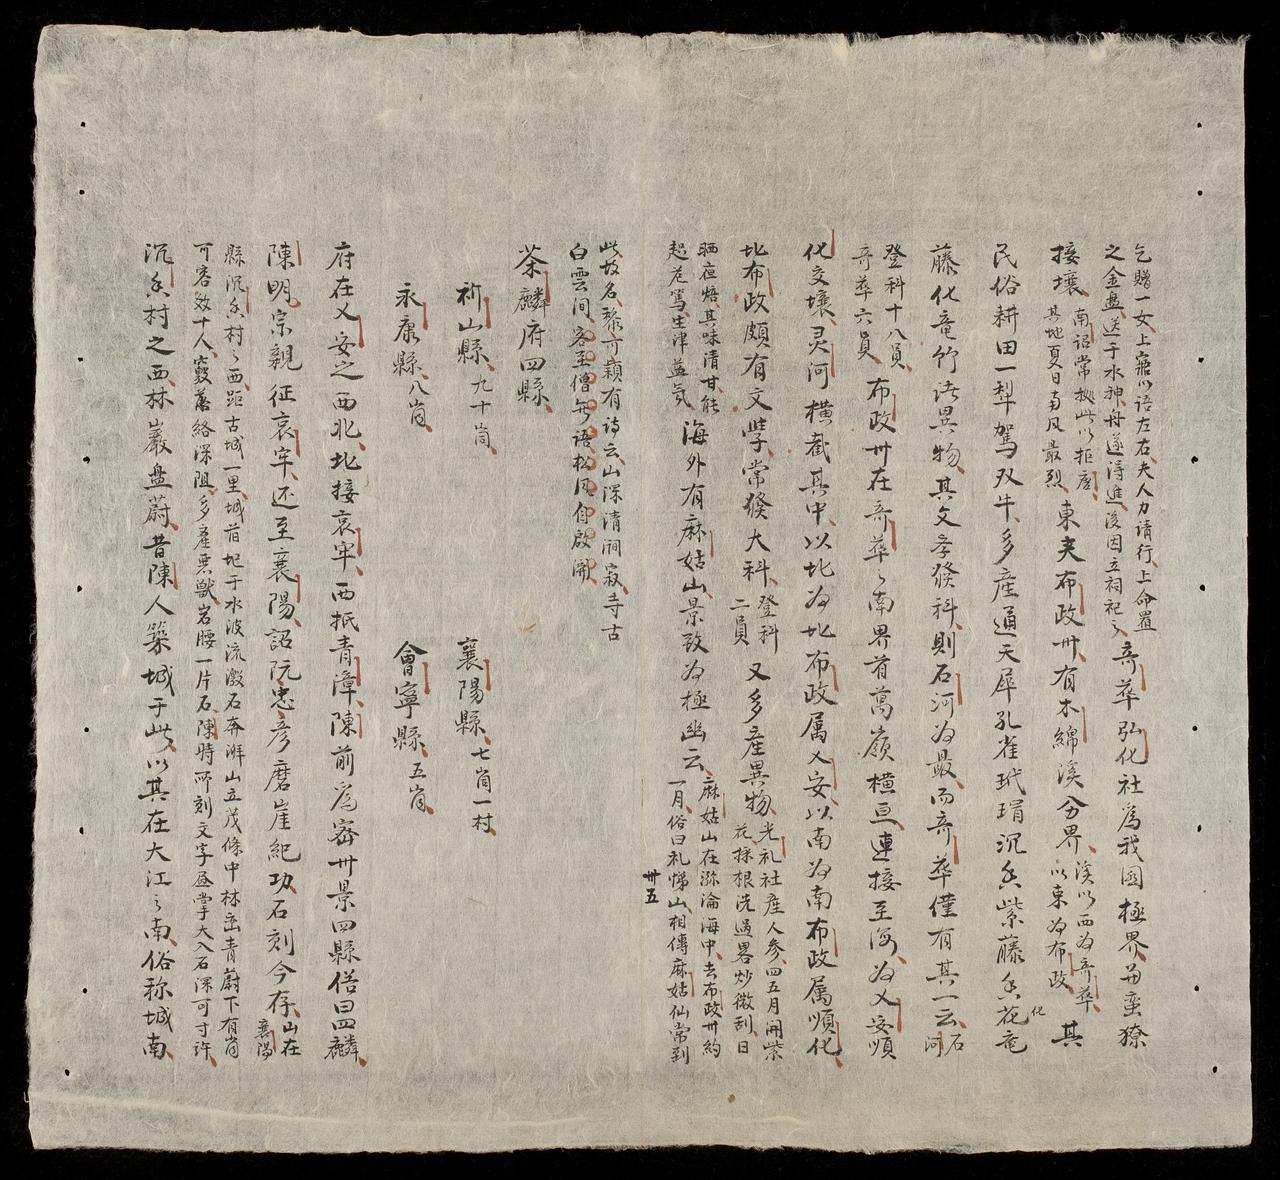 乞贈一女上寤以語左右夫人力請行上命置
之金盘送于水神舟遂得進後因立祠祀之奇華弘化社為我國極界毎蛮獠
接壤南詔常拠此以拒唐
其地夏日南风最烈東夫布政卅有木綿溪分界溪以西为奇華
以東为布政其
民俗耕田一犁駕双牛多產通天犀孔雀玳瑁沉香紫藤香花竜
化
藤化竜竹諸異物其文孝發科則石河为最而奇華僅有其一云石
河
登科十八員
奇華六員布政卅在奇華之南界首萬嶺橫亘連接至海为乂安順
化交壤灵河橫截其中以北为北布政属乂安以南为南布政属順化
北布政頗有文學常發大科登科
二員又多產異物光礼社產人參四五月開紫
花採根洗過畧炒微刮日
晒夜焙其味清甘能
起危篤生津益气海外有麻姑山景致为極幽云麻姑山在㳽淪海中去布政卅約
一月俗曰礼悌山相傳麻姑仙常到
卅五
此故名黎可頴有詩云山深清澗寂寺古
白雲间客至僧無语松风自啟開
茶麟府四縣
祈山縣九十峝 襄陽縣七峝一村
永康縣八峝 會寧縣五峝
府在乂安之西北北接哀牢西抵青漳陳前為密卅景四縣俗曰四麟
陳明宗親征哀牢还至襄陽詔阮忠彦磨崖紀功石刻今存山在
襄陽
縣沉香村之西距古城一里城前圯于水波流激石奔湃山立茂條中林峦青蔚下有岩
可容数十人竅落絡深阻多產悪獸岩腰一片石陳時所刻文字昼掌大入石深可寸許
沉香村之西林巖盘蔚昔陳人築城于此以其在大江之南俗称城南